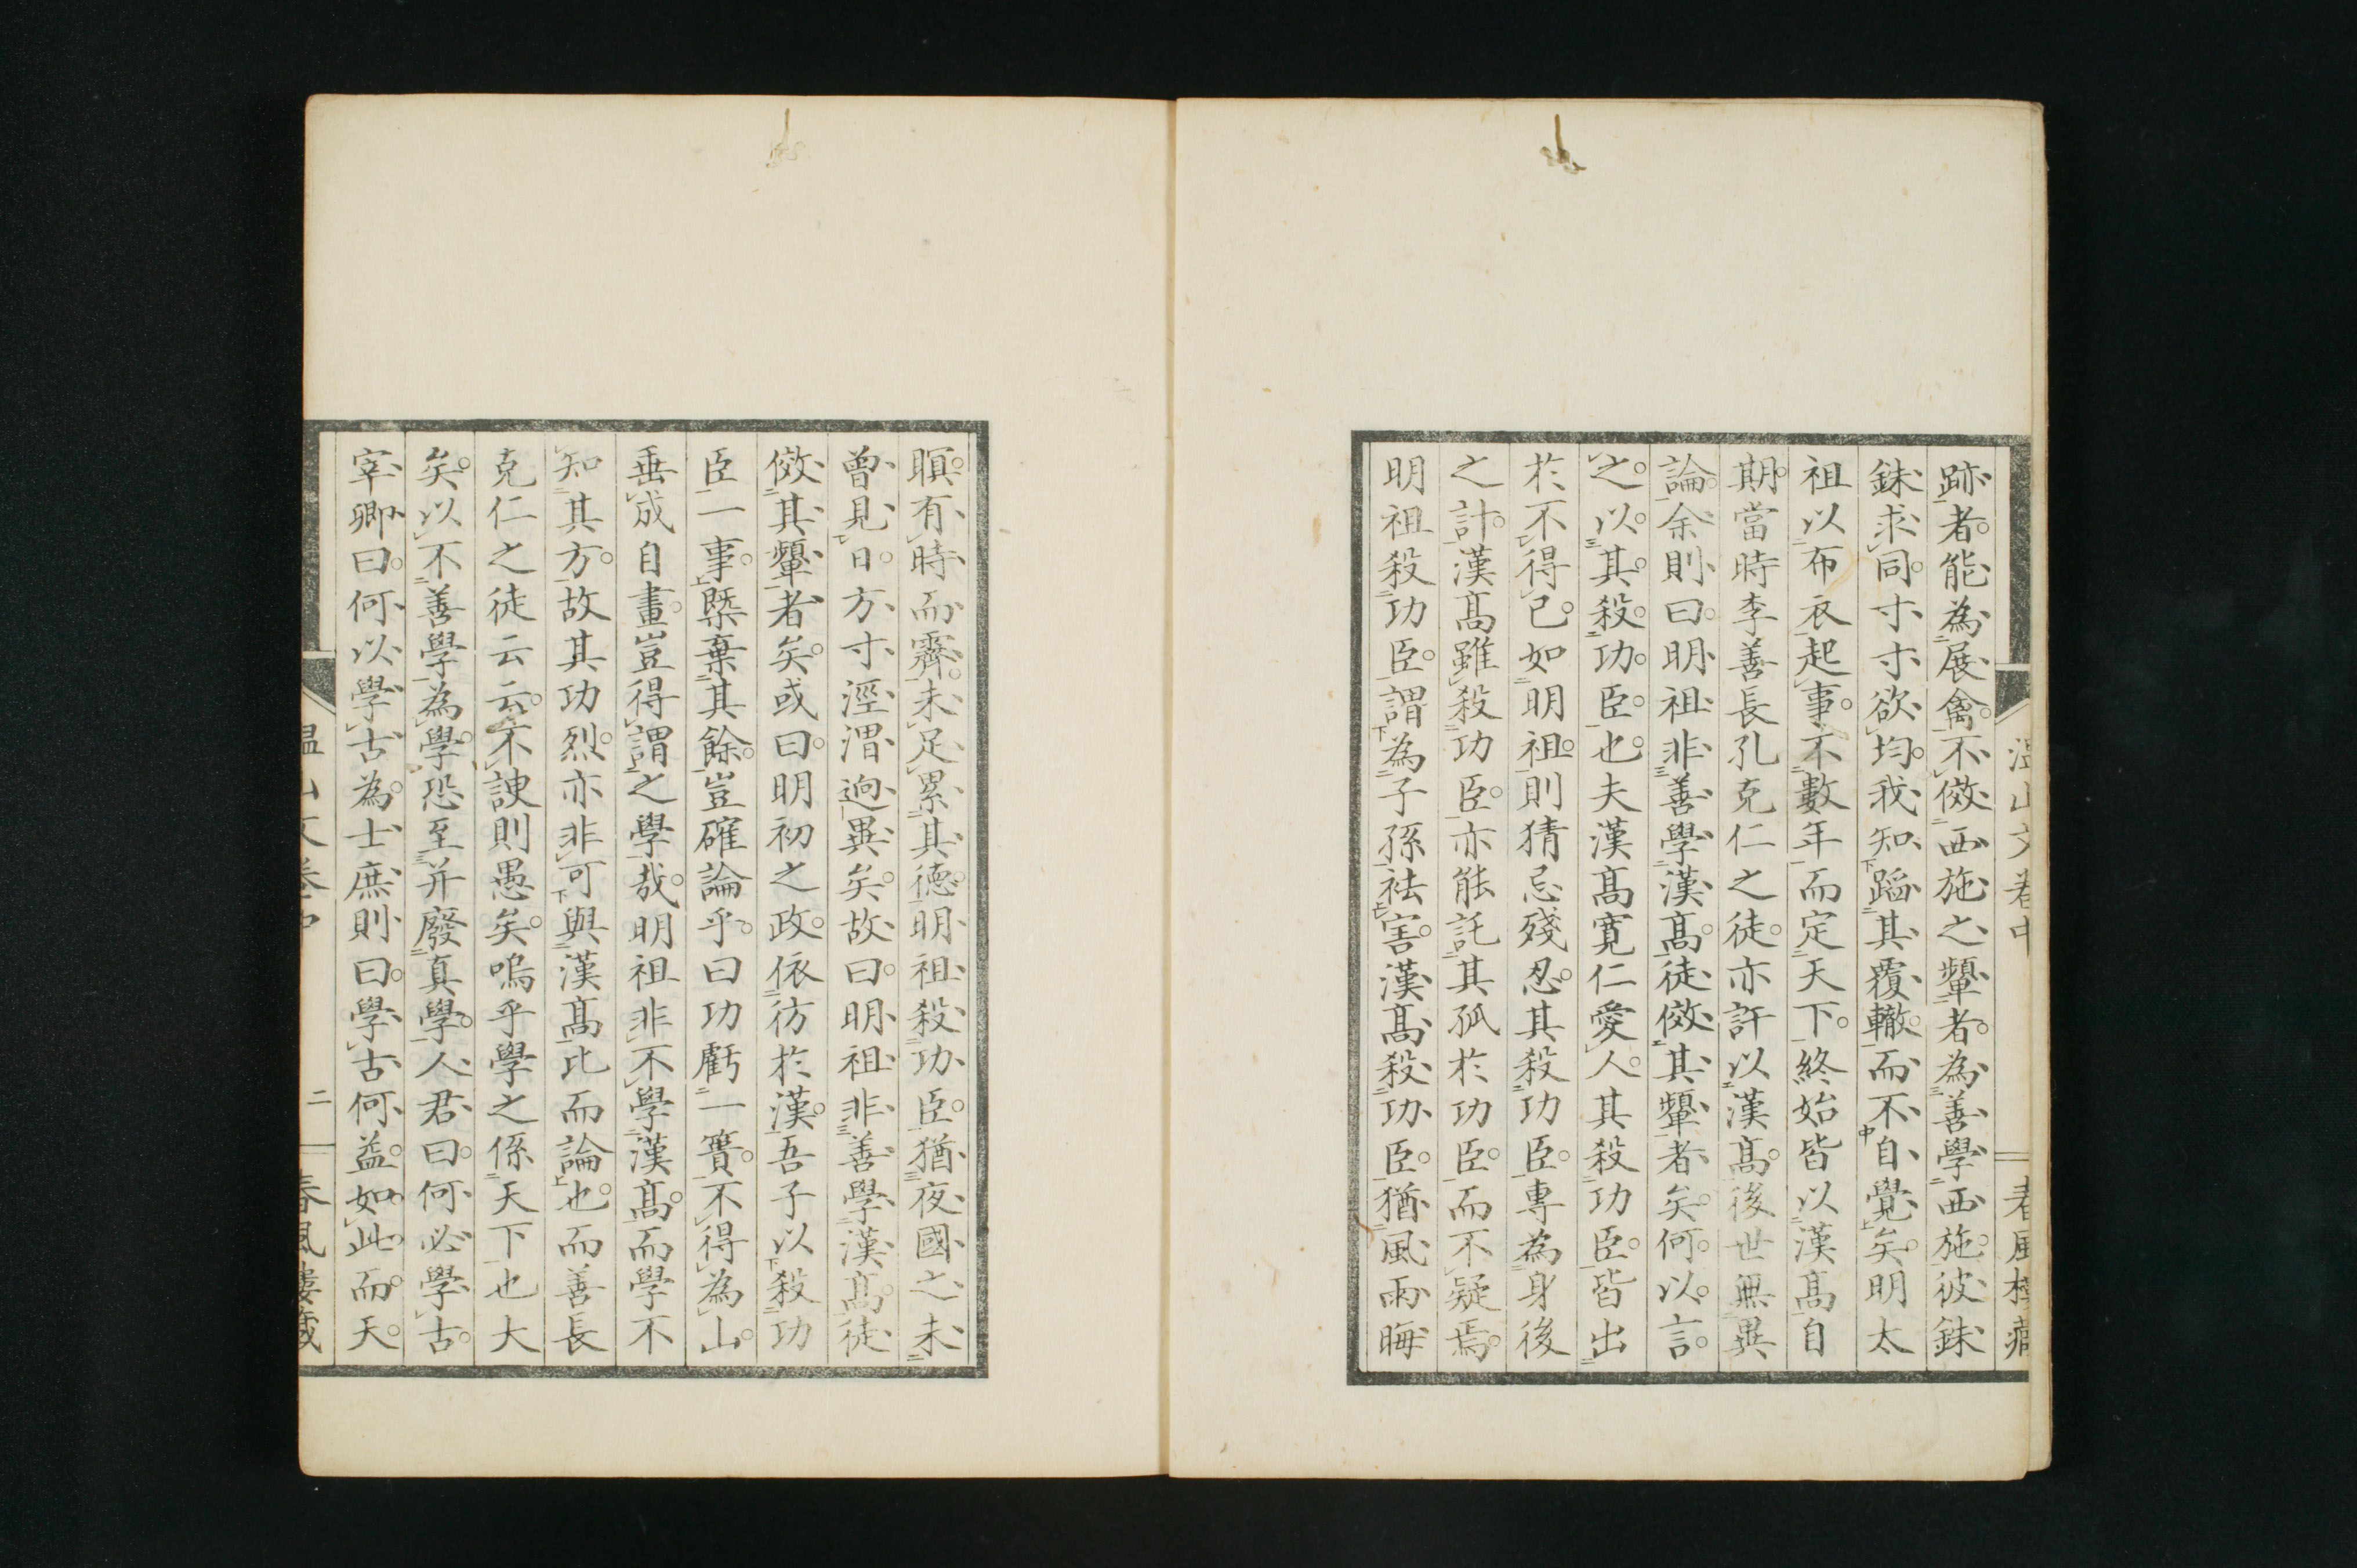 跡者。能為展禽。不傚西施之顰者。為善學西施。彼銖
銖求同。寸寸欲均。我知蹈其覆轍。而不自覺矣。明太
祖以布衣起事。不數年而定天下。終始皆以漢高自
期。當時李善長孔克仁之徒。亦許以漢高。後世無異
論。余則曰。明祖非善學漢高。徒傚其顰者矣。何以言
之。以其殺功臣也。夫漢高寬仁愛人。其殺功臣。皆出
於不得已。如明祖。則猜忌殘忍。其殺功臣。專為身後
之計。漢高雖殺功臣。亦能託其孤於功臣。而不疑焉。
明祖殺功臣。謂為子孫祛害。漢高殺功臣。猶風雨晦
暝。有時而霽。未足累其德。明祖殺功臣。猶夜國之未
曾見日。方寸涇渭逈異矣。故曰。明祖非善學漢高。徒
傚其顰者矣。或曰。明初之政。依彷於漢。吾子以殺功
臣一事。槩棄其餘。豈確論乎。曰功虧一簣。不得為山。
垂成自畫。豈得謂之學哉。明祖非不學漢高。而學不
知其方。故其功烈。亦非可與漢高比而論也。而善長
克仁之徒云云。不諛則愚矣。嗚乎學之係天下也大
矣。以不善學為學。恐至并廢真學。人君曰。何必學古。
宰卿曰。何以學古為。士庶則曰。學古何益。如此而天。
溫山文卷中
二
春風樓藏